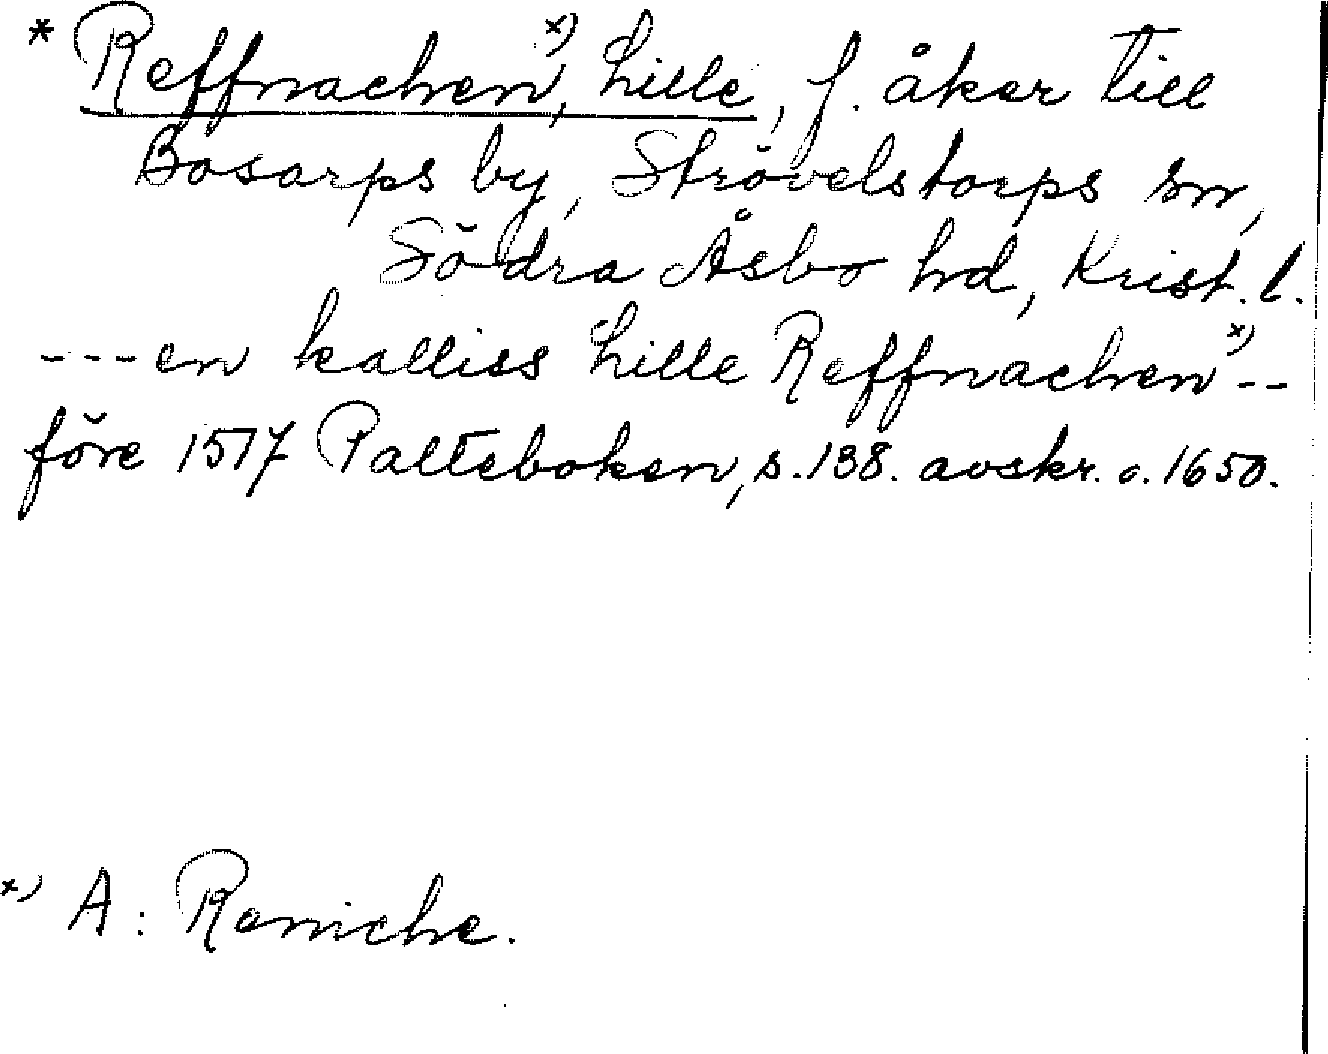 * Reffnachen x), Lille, f. åker till
Bosarps by, Strövelstorps sn,
Södra Åsbo hd, Krist. l.
---en kalliss Lille Reffnachen x)--
före 1517 Palteboken, s. 138. avskr. c. 1650.
x) A: Reniche.